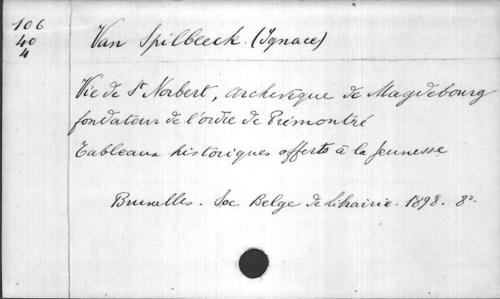 106
40
4
Van Spilbeeck. (Ignace)
Vie de St Norbert, archevêque de Magdebourg
fondateur de l'ordre de Prémontré
Tableaux historiques offerts à la Jeunesse
Bruxelles. Soc. Belge de librairie. 1898. 8°.